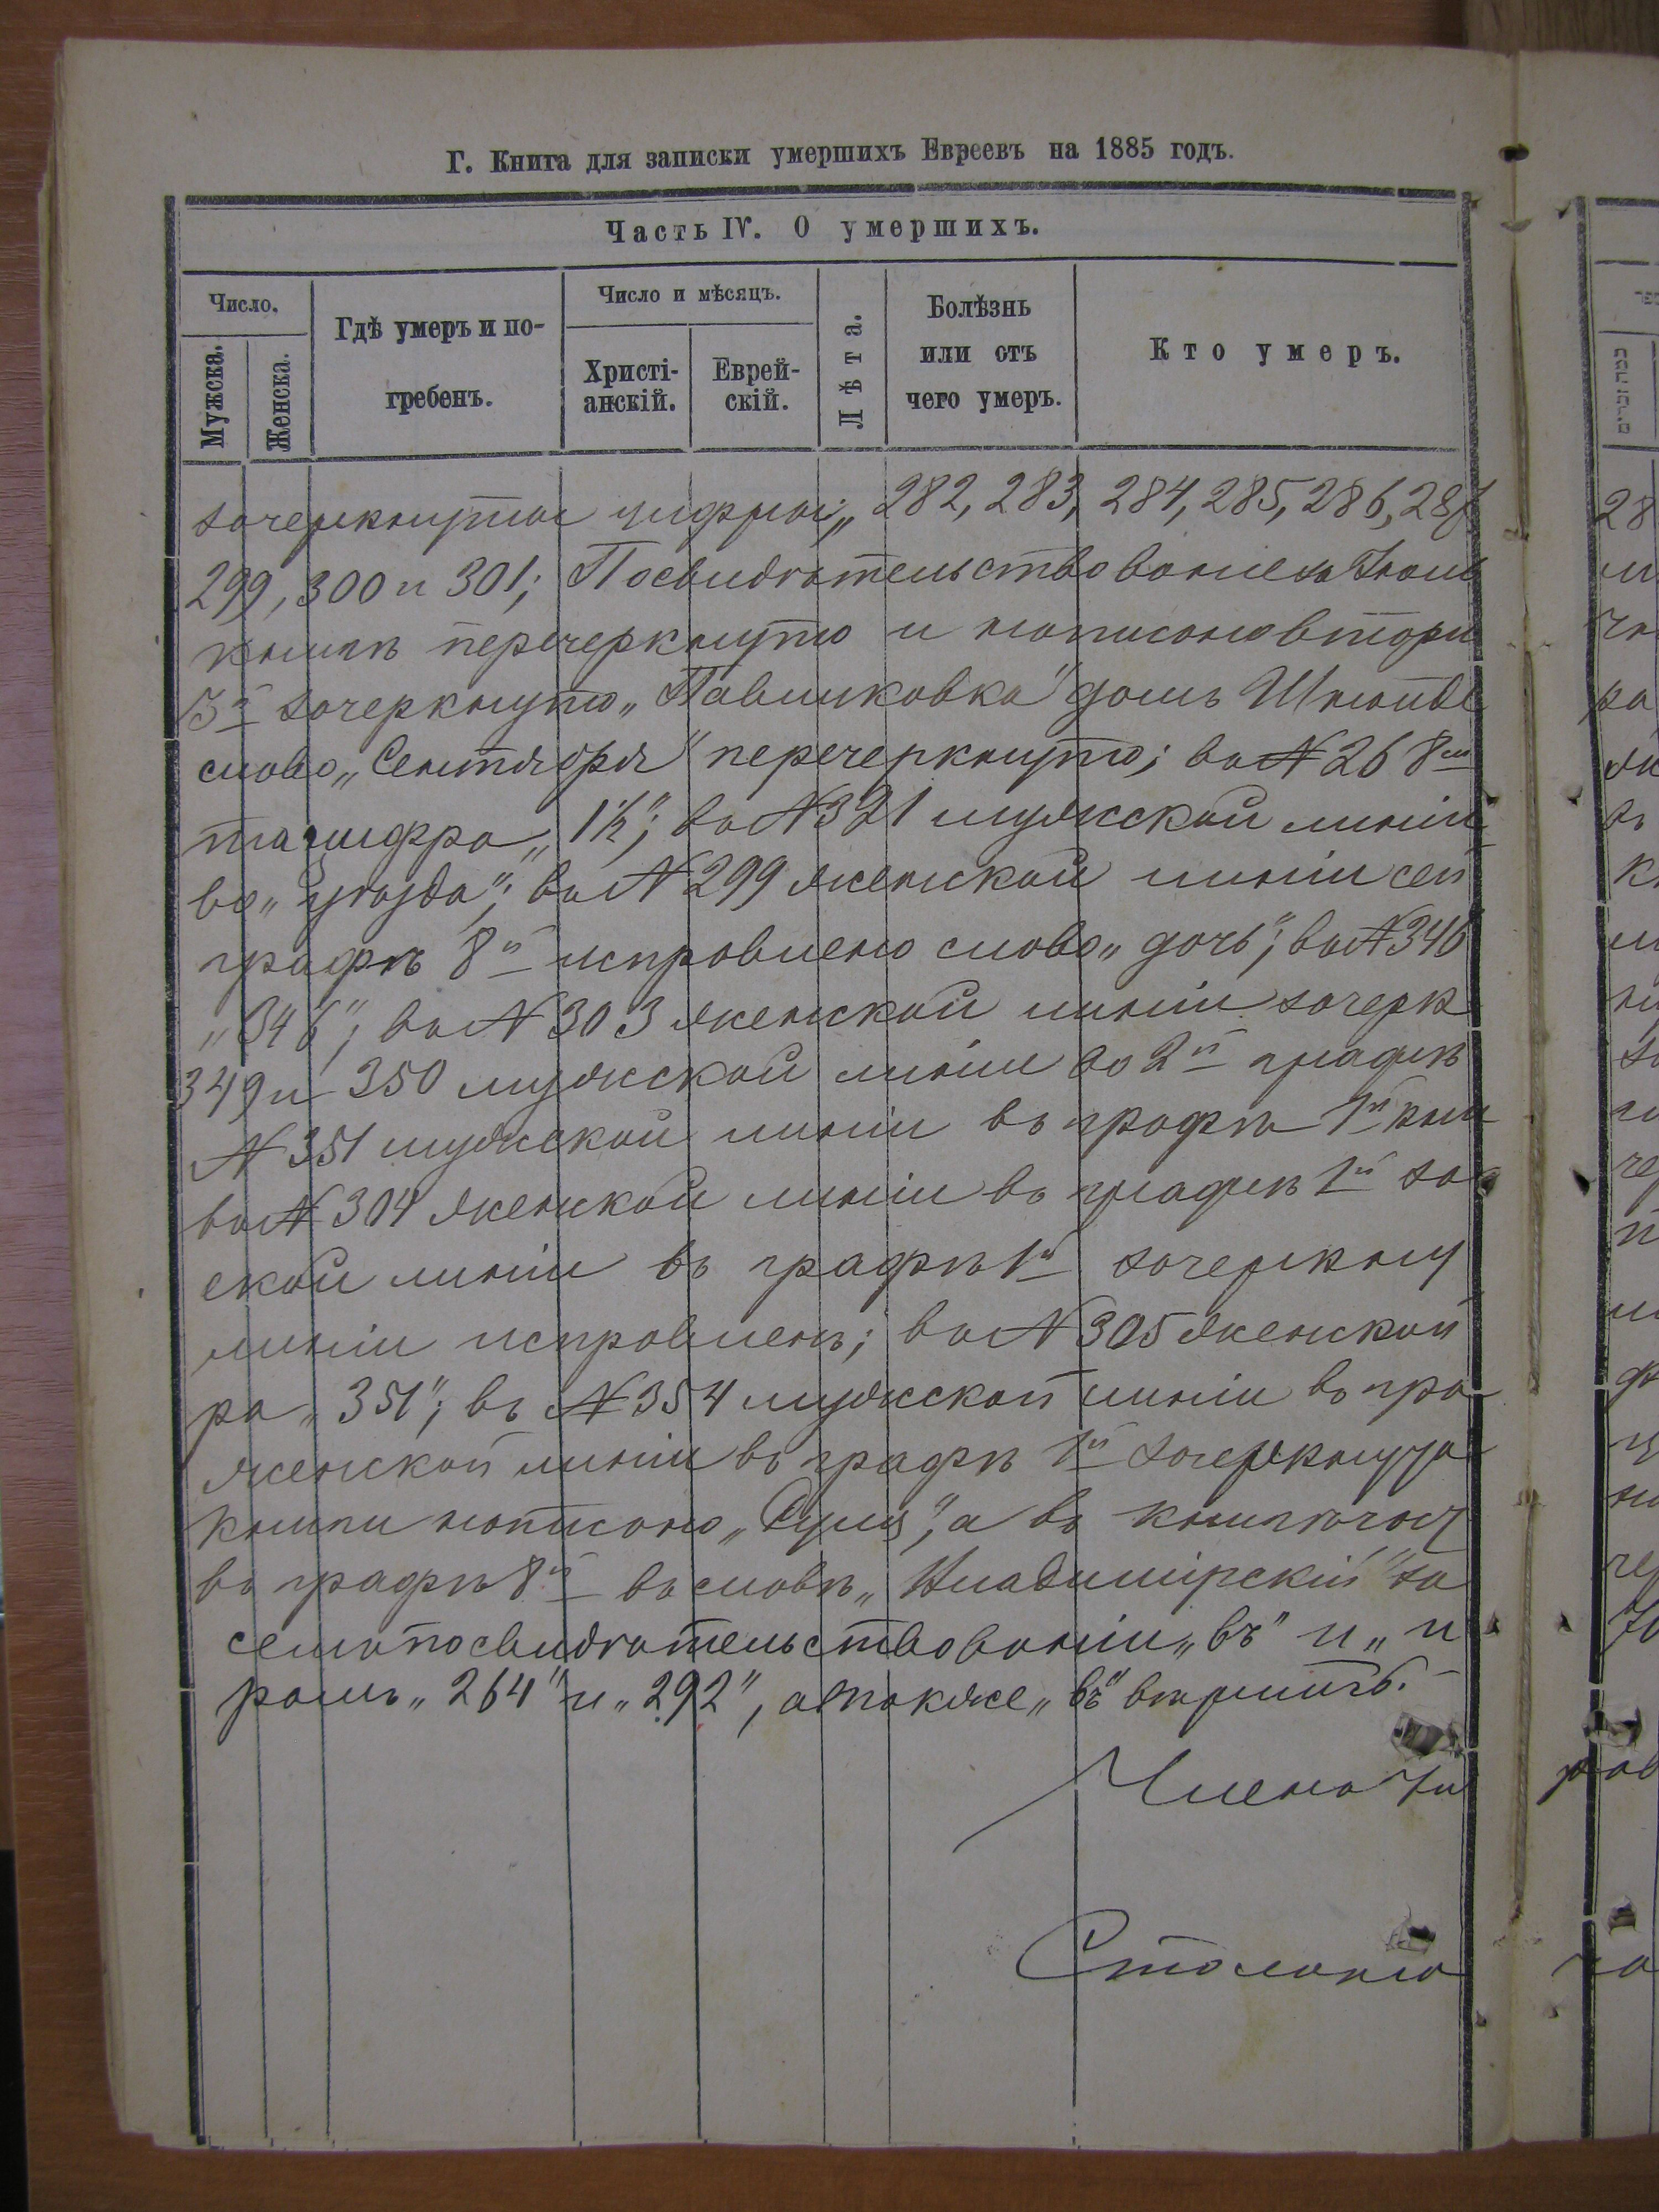 Г. Книга для записки умершихъ Евреевъ на 1885 годъ.
Часть IV. О умершихъ.
Число.
Мужска.
Женска.
Гдѣ умеръ и по-
гребенъ.
Число и мѣсяцъ.
Христі-
анскій.
Еврей-
скій.
Лѣта.
Болѣзнь
или отъ
чего умеръ.
Кто умеръ.
зачеркнуты цифры: „282, 283, 284, 285, 286, 287
299, 300 и 301; Посвидѣтельствованіе за
книгѣ перечеркнуто и написано втори
3й зачеркнуто „Павликовка" домъ
слово „Сентября" перечеркнуто; въ № 268
та цифра „1½"; въ № 321 мужской линіи
во „уѣзда"; въ № 299 женской линіи сей
графѣ 8й исправлено слово „дочь"; въ № 346
„346"; въ № 303 женской линіи зачерк
349 и 350 мужской линіи во 2й графѣ
№ 351 мужской линіи въ графѣ 1й кни
въ № 304 женской линіи въ графѣ 1й за
ской линіи въ графѣ 1й зачеркну
линіи исправленъ; въ № 305 женской
ра „351"; въ № 354 мужской линіи въ гра
женской линіи въ графѣ 1й зачеркнута
книги написано „а въ книгѣ
въ графѣ 8й въ словѣ „Владимірскій" за
семъ посвидѣтельствованіи „въ" и „и
рамъ „264" и „292", а также „въ" вѣрить.
Члена
28
ра